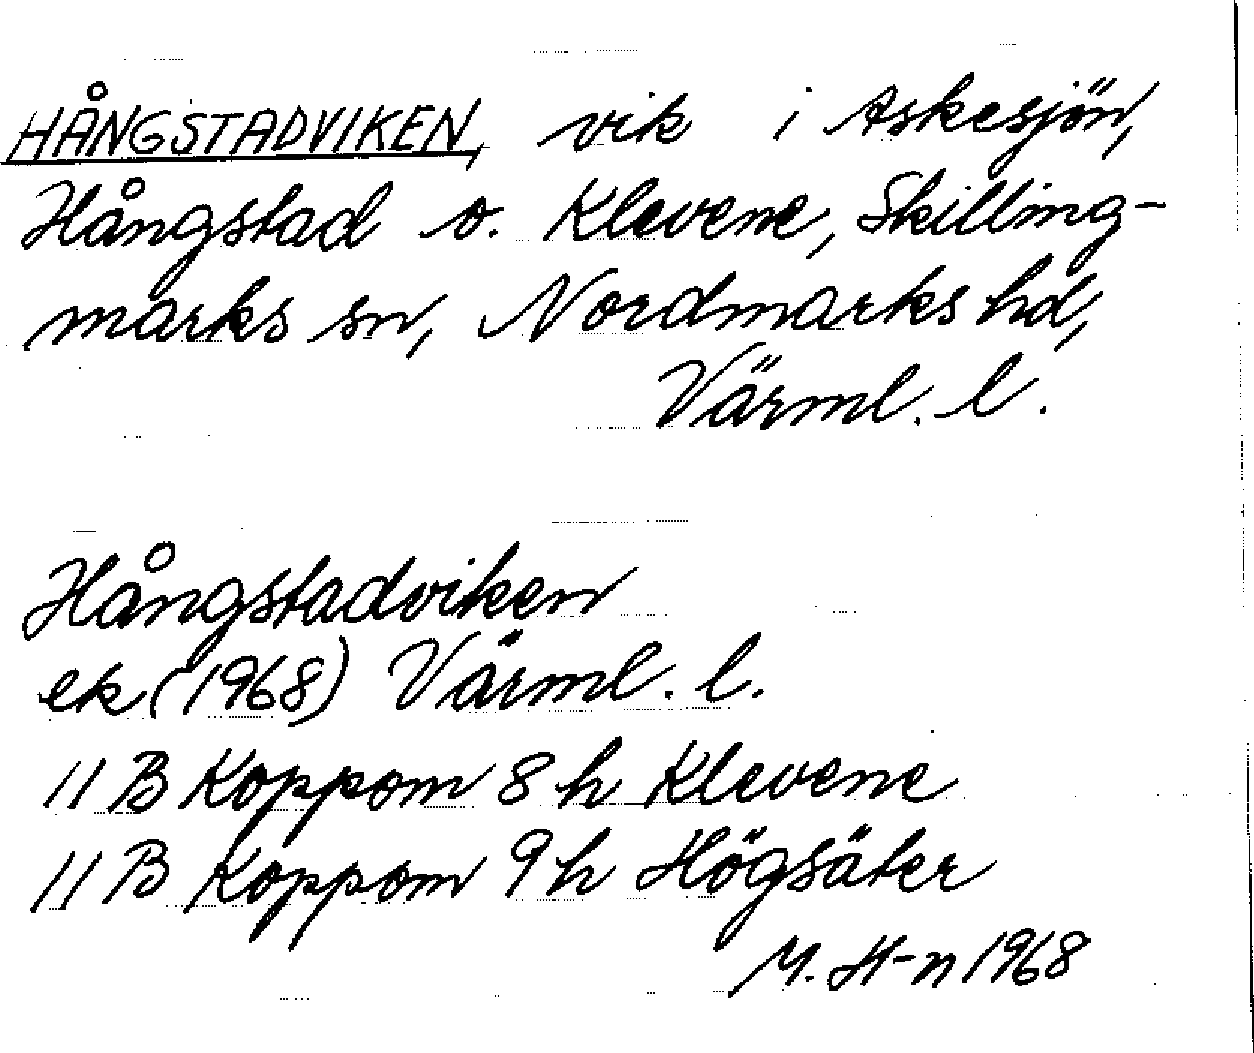 HÅNGSTADVIKEN, vik i Askesjön,
Hångstad o. Klevene, Skilling-
marks sn, Nordmarks hd,
Värml. l.
Hångstadviken
ek (1968) Värml. l.
11 B Koppom 8 h Klevene
11 B Koppom 9 h Högsäter
M. H-n 1968